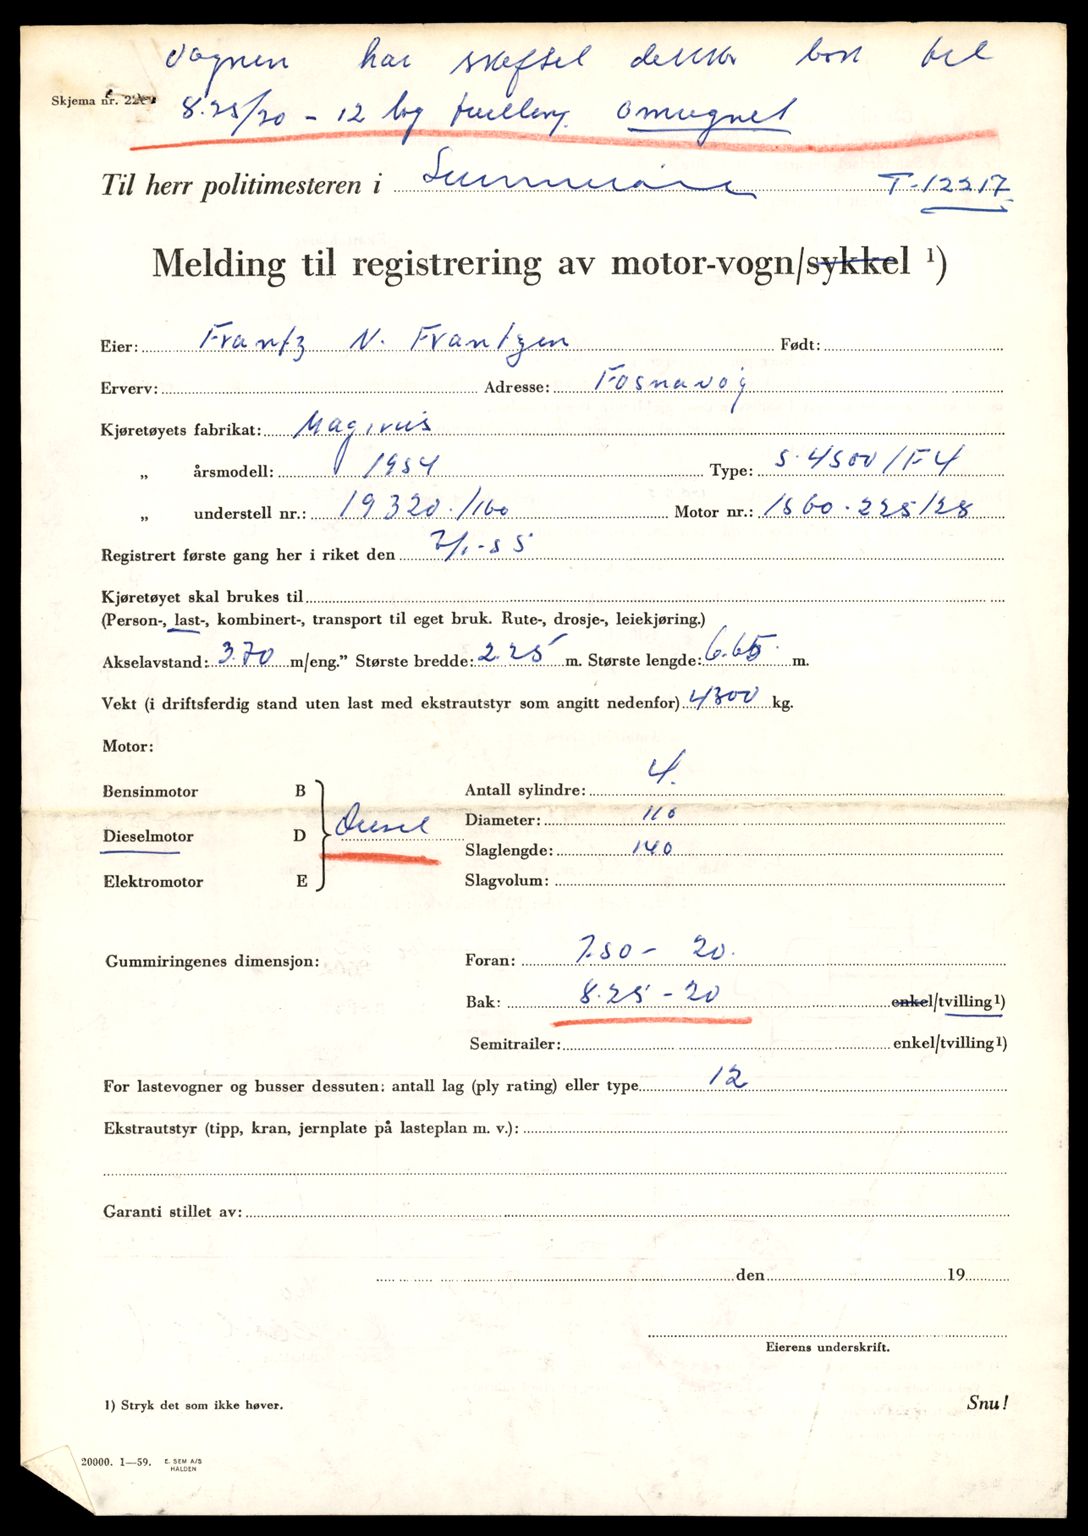 Vognen har skiftet dekker bak til
Skjema nr. 22
8.25/20 - 12 lag tvilling. omregnet
Til herr politimesteren i Sunnmøre T-12217
Melding til registrering av motor-vogn/sykkel ¹)
Eier: Frantz N. Frantzen Født:
Erverv: Adresse: Fosnavåg
Kjøretøyets fabrikat: Magirus
„ årsmodell: 1954 Type: S.4500/F4
„ understell nr.: 19320./160 Motor nr.: 1560.225/28
Registrert første gang her i riket den 7/1-55
Kjøretøyet skal brukes til
(Person-, last-, kombinert-, transport til eget bruk. Rute-, drosje-, leiekjøring.)
Akselavstand: 3.70 m/eng.” Største bredde: 2.25 m. Største lengde: 6.65 m.
Vekt (i driftsferdig stand uten last med ekstrautstyr som angitt nedenfor) 4300 kg.
Motor:
Bensinmotor B Antall sylindre: 4.
Diameter: 110
Dieselmotor D Diesel
Slaglengde: 140
Elektromotor E Slagvolum:
Gummiringenes dimensjon: Foran: 7.50 - 20.
Bak: 8.25 - 20 enkel/tvilling¹)
Semitrailer: enkel/tvilling¹)
For lastevogner og busser dessuten: antall lag (ply rating) eller type 12
Ekstrautstyr (tipp, kran, jernplate på lasteplan m. v.):
Garanti stillet av:
den 19
Eierens underskrift.
1) Stryk det som ikke høver. Snu!
20000. 1—59. E. SEM A/S
HALDEN